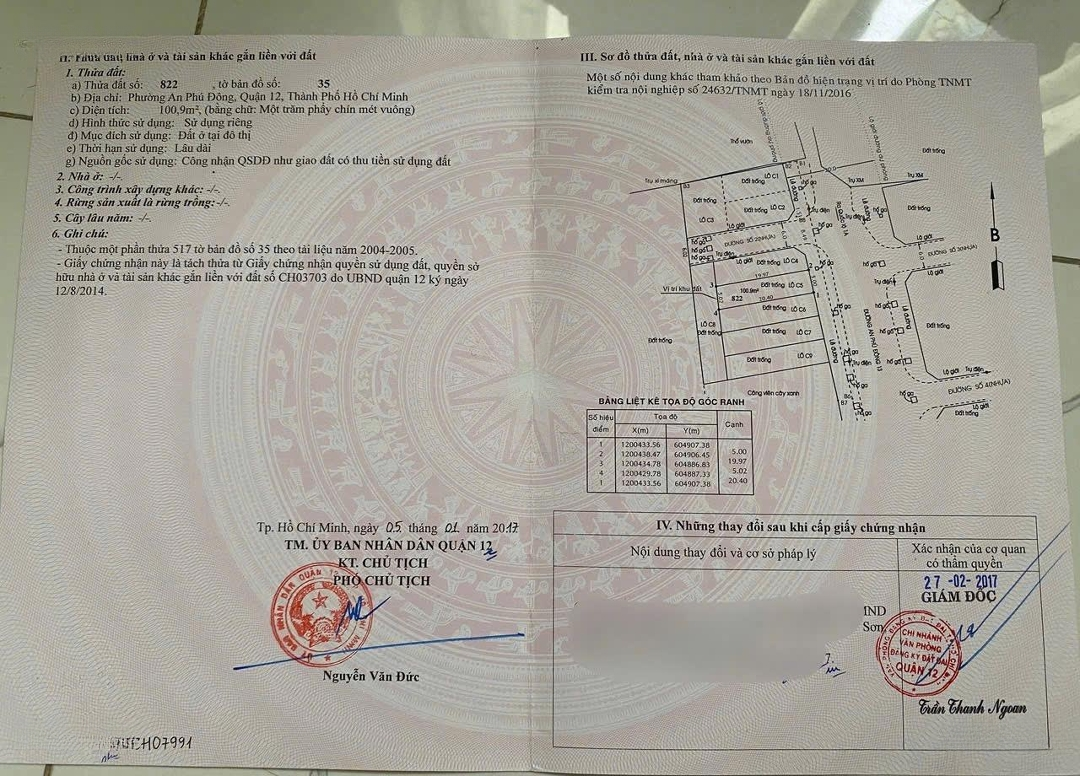 II. Thửa đất, nhà ở và tài sản khác gắn liền với đất
1. Thửa đất:
a) Thửa đất số: 822 , tờ bản đồ số: 35
b) Địa chỉ: Phường An Phú Đông, Quận 12, Thành Phố Hồ Chí Minh
c) Diện tích: 100,9m², (bằng chữ: Một trăm phẩy chín mét vuông)
d) Hình thức sử dụng: Sử dụng riêng
đ) Mục đích sử dụng: Đất ở tại đô thị
e) Thời hạn sử dụng: Lâu dài
g) Nguồn gốc sử dụng: Công nhận QSDĐ như giao đất có thu tiền sử dụng đất
2. Nhà ở: -/-.
3. Công trình xây dựng khác: -/-.
4. Rừng sản xuất là rừng trồng:-/-.
5. Cây lâu năm: -/-.
6. Ghi chú:
- Thuộc một phần thửa 517 tờ bản đồ số 35 theo tài liệu năm 2004-2005.
- Giấy chứng nhận này là tách thửa từ Giấy chứng nhận quyền sử dụng đất, quyền sở
hữu nhà ở và tài sản khác gắn liền với đất số CH03703 do UBND quận 12 ký ngày
12/8/2014.
Tp. Hồ Chí Minh, ngày 05 tháng 01 năm 2017
TM. ỦY BAN NHÂN DÂN QUẬN 12
KT. CHỦ TỊCH
PHÓ CHỦ TỊCH
Nguyễn Văn Đức
CH07991
III. Sơ đồ thửa đất, nhà ở và tài sản khác gắn liền với đất
Một số nội dung khác tham khảo theo Bản đồ hiện trạng vị trí do Phòng TNMT
kiểm tra nội nghiệp số 24632/TNMT ngày 18/11/2016
Thổ vườn
Đất trống
Trụ xi măng
Đất trống
LÔ C1
Trụ XM
Đất trống
LÔ C2
LÔ C3
Lề đường
hố ga
Trụ điện
Lộ giới
ĐƯỜNG SỐ 2(NHỰA)
ĐƯỜNG SỐ 3(NHỰA)
B
Lộ giới
LÔ C4
19.97
Đất trống
LÔ C5
100.9m²
822
20.40
Vị trí khu đất
Đất trống
LÔ C6
LÔ C8
Đất trống
Đất trống
LÔ C7
Đất trống
LÔ C9
Đất trống
ĐƯỜNG AN PHÚ ĐÔNG 13
Lề đường
Trụ điện
hố ga
Đất trống
Lộ giới
Trụ điện
ĐƯỜNG SỐ 4(NHỰA)
Lộ giới
Đất trống
Công viên cây xanh
BẢNG LIỆT KÊ TỌA ĐỘ GÓC RANH
Số hiệu điểm
Tọa độ
Cạnh
X(m) Y(m)
1 1200433.56 604907.38
5.00
2 1200438.47 604906.45
19.97
3 1200434.78 604886.83
5.02
4 1200429.78 604887.33
20.40
1 1200433.56 604907.38
IV. Những thay đổi sau khi cấp giấy chứng nhận
Nội dung thay đổi và cơ sở pháp lý
Xác nhận của cơ quan
có thẩm quyền
27 -02- 2017
GIÁM ĐỐC
IND
Sơn
CHI NHÁNH
VĂN PHÒNG
ĐĂNG KÝ ĐẤT ĐAI
QUẬN 12
Trần Thanh Ngoan